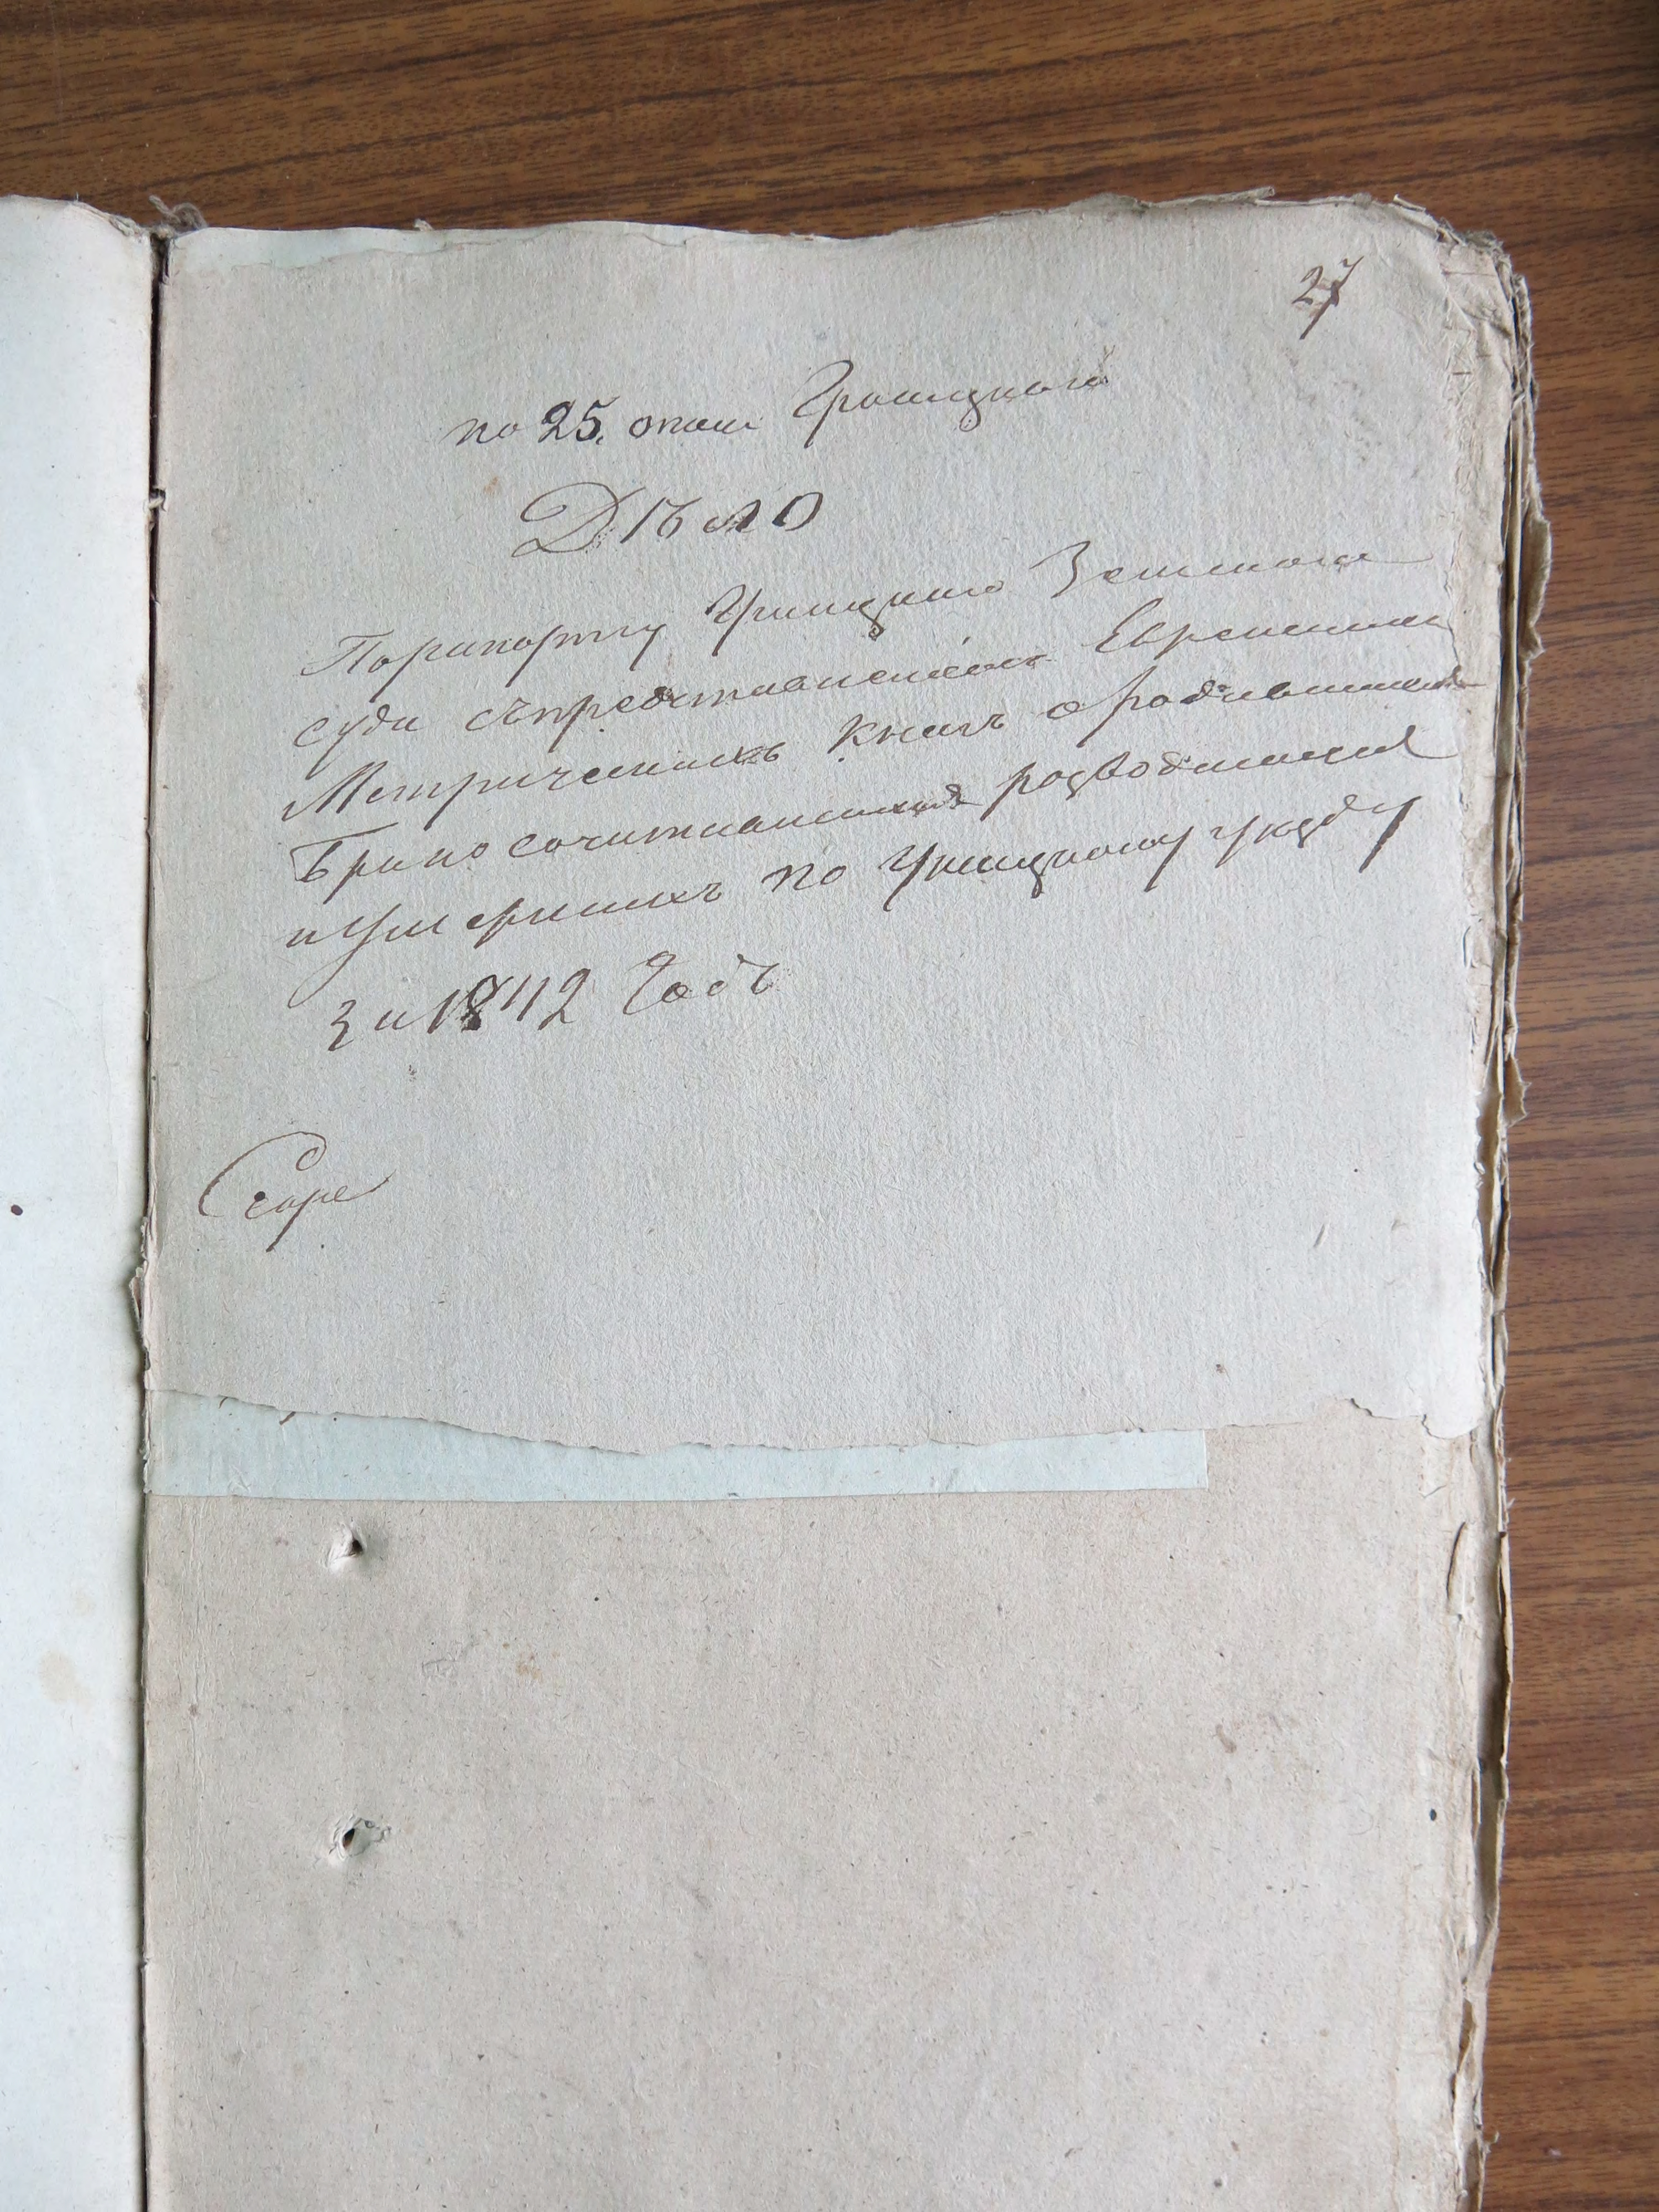 27
по 25. описи Троицкого
Дѣло
По рапорту Троицкаго Земскаго
суда съ представленіемъ Еврейскихъ
Метрическихъ книгъ о родившихся
бракосочитавшихся разводившихся
и умершихъ по Троицкому уезду
за 1842 Годъ